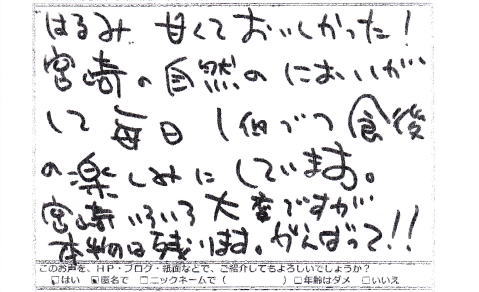 はるみ 甘くておいしかった!
宮崎の自然のにおいが
して毎日1個づつ食後
の楽しみにしています。
宮崎いろいろ大変ですが
本物は残ります。がんばって!!
このお声を、HP・ブログ・紙面などで、ご紹介してもよろしいでしょうか?
□はい ☑匿名で □ニックネームで ( ) □年齢はダメ □いいえ